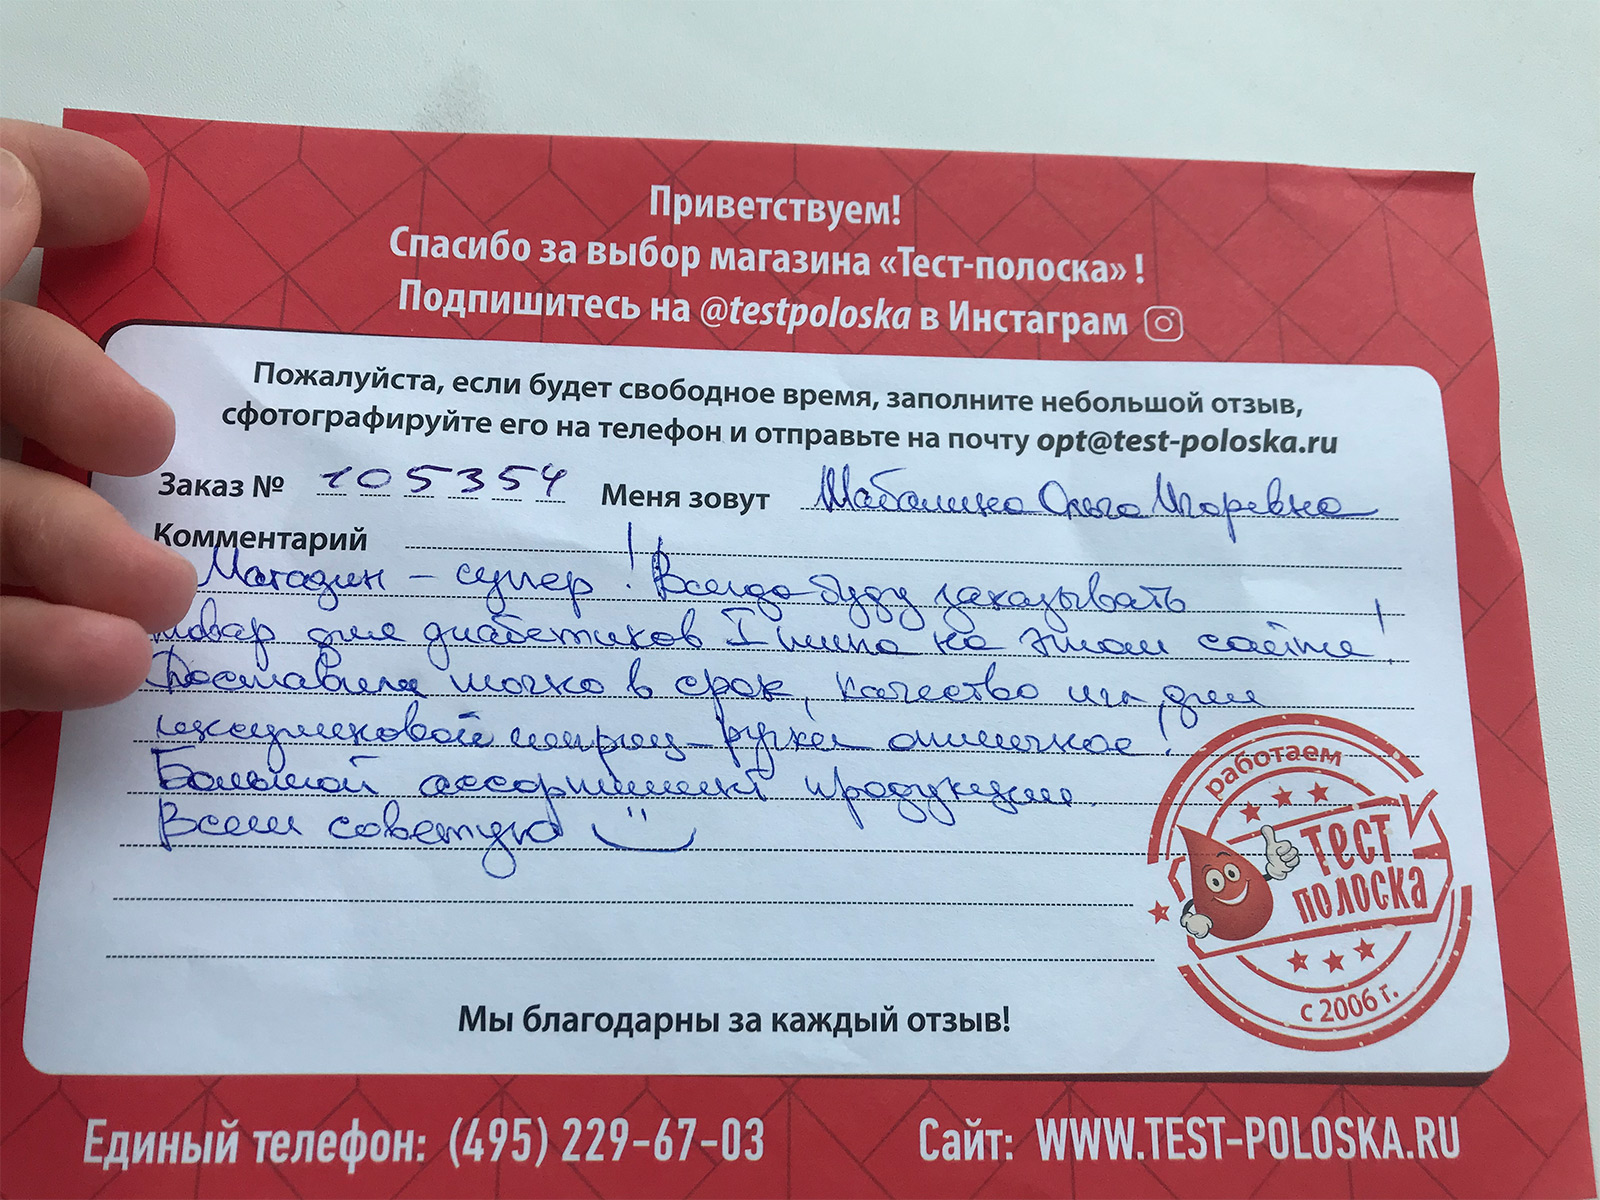 Приветствуем!
Спасибо за выбор магазина «Тест-полоска» !
Подпишитесь на @testpoloska в Инстаграм
Пожалуйста, если будет свободное время, заполните небольшой отзыв,
сфотографируйте его на телефон и отправьте на почту opt@test-poloska.ru
Заказ № 105354 Меня зовут Шабалина Ольга Игоревна
Комментарий
Магазин - супер! Всегда буду заказывать
товар для диабетиков I типа на этом сайте!
Доставили точно в срок, качество игл для
инсулиновой шприц-ручки отличное!
Большой ассортимент продукции.
Всем советую
работаем
ТЕСТ
ПОЛОСКА
с 2006 г.
Мы благодарны за каждый отзыв!
Единый телефон: (495) 229-67-03 Сайт: WWW.TEST-POLOSKA.RU